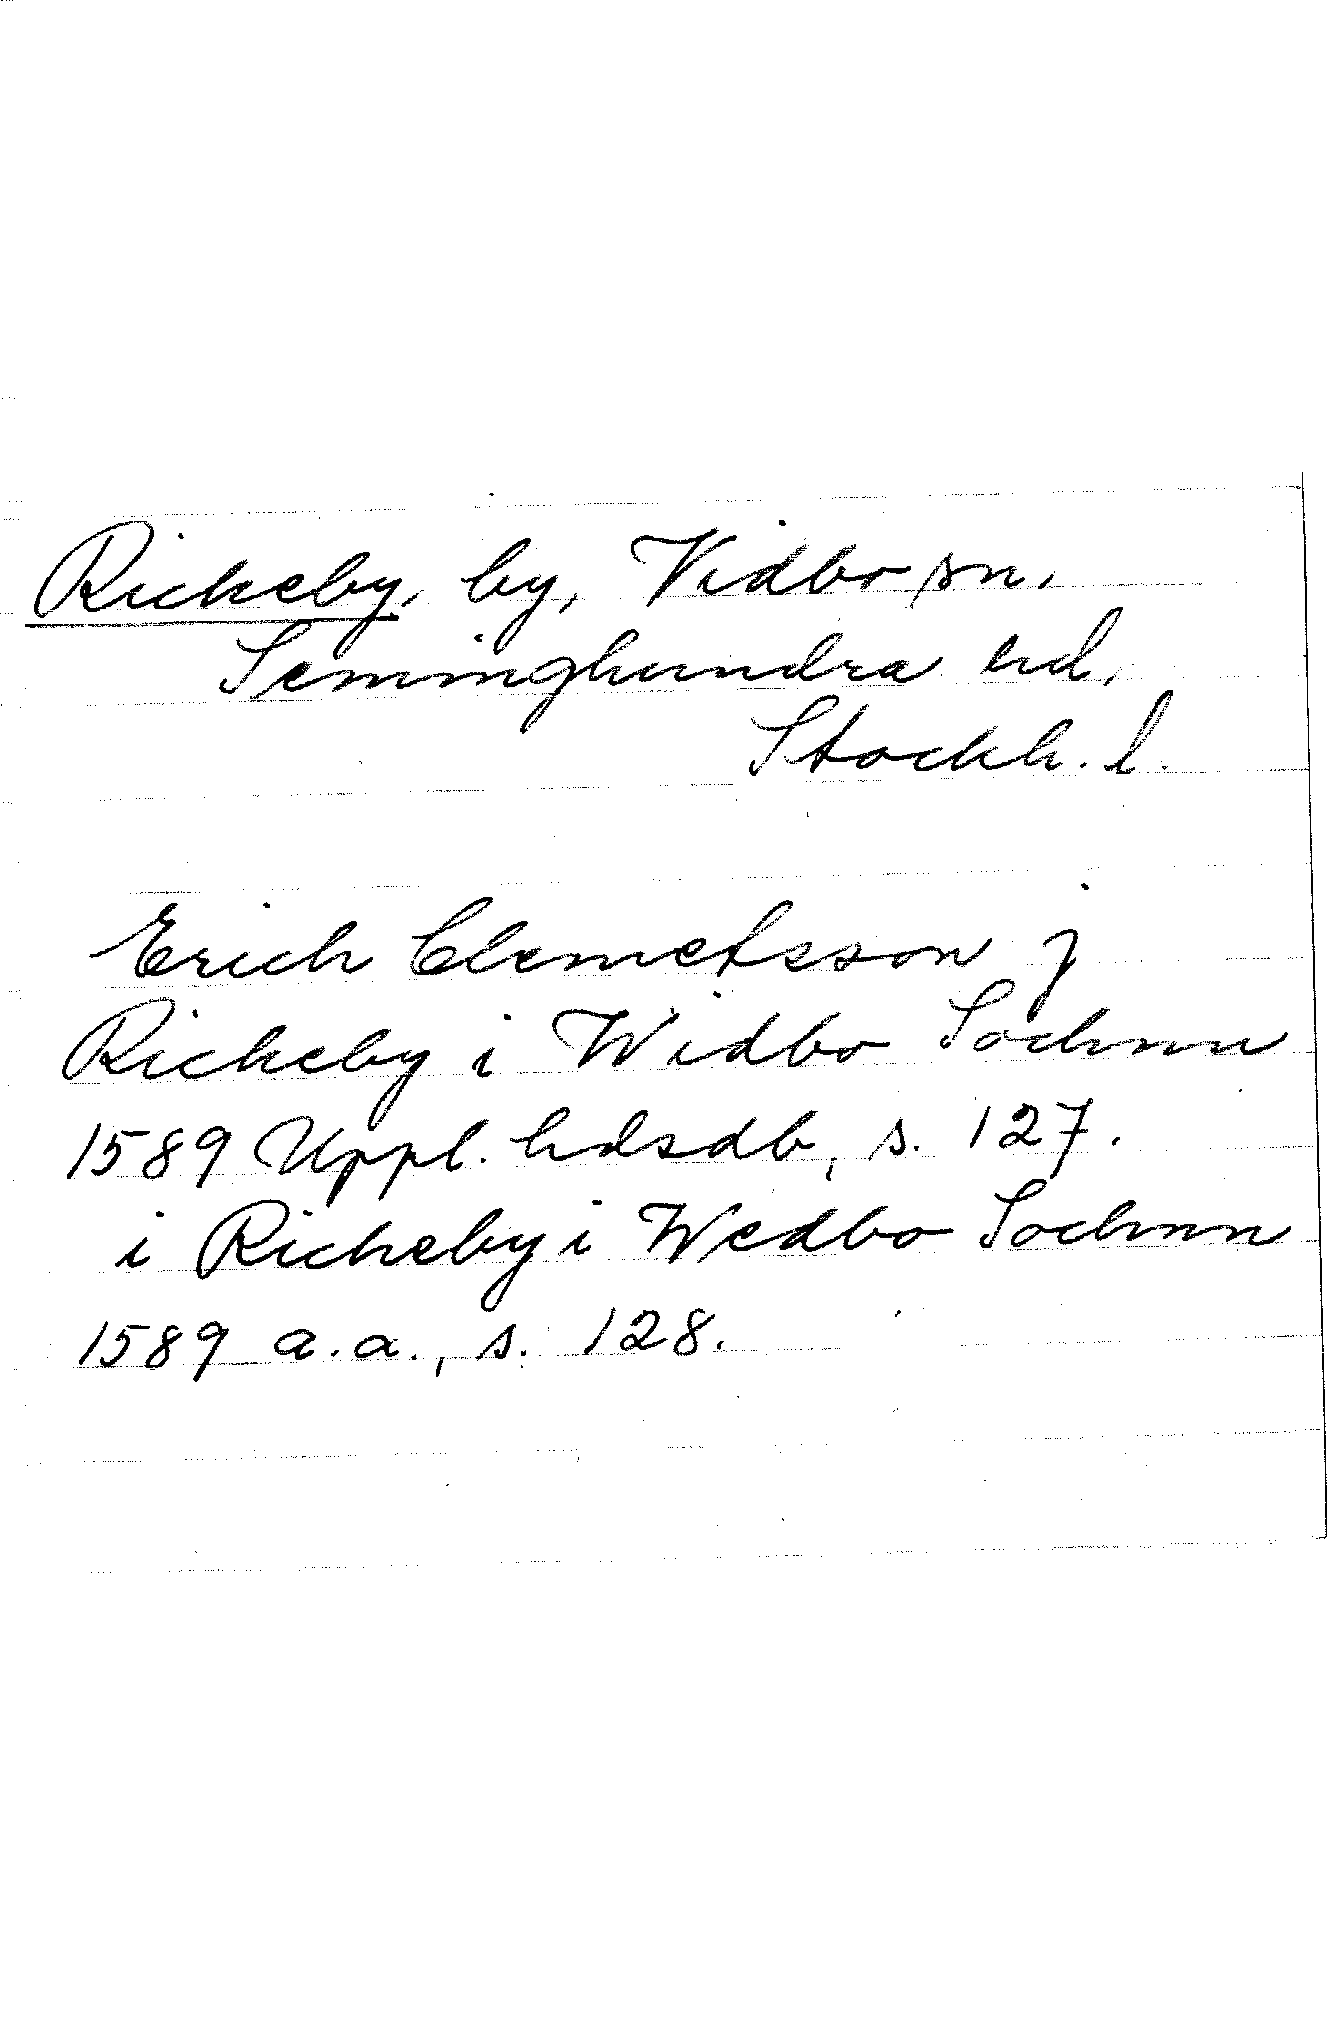 Rickeby, by, Vidbo sn.
Seminghundra hd.
Stockh. l.
Erich Clemetsson j
Rickeby i Widbo Sochnn
1589 Uppl. hdsdb, s. 127.
i Rickeby i Wedbo Sochnn
1589 a.a., s. 128.